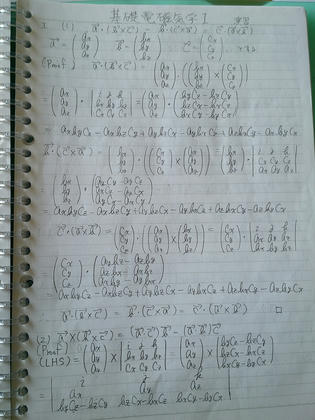 基礎電磁気学I 演習
1 (1) a⃗·(b⃗×c⃗) = b⃗·(c⃗×a⃗) = c⃗·(a⃗×b⃗)
a⃗ = (ax ay az) b⃗ = (bx by bz) c⃗ = (cx cy cz)
(Proof) a⃗·(b⃗×c⃗) = (ax ay az)·((bx by bz)×(cx cy cz))
= (ax ay az)·|i j k bx by bz cx cy cz| = (ax ay az)·(bycz-bzcy bzcx-bxcz bxcy-bycx)
= axbycz - axbzcy + aybzcx - aybxcz + azbxcy - azbycx
b⃗·(c⃗×a⃗) = (bx by bz)·((cx cy cz)×(ax ay az)) = (bx by bz)·|i j k cx cy cz ax ay az|
= (bx by bz)·(azcy-aycz axcz-azcx aycx-axcy)
= axbycz - axbzcy + aybzcx - aybxcz + azbxcy - azbycx
c⃗·(a⃗×b⃗) = (cx cy cz)·((ax ay az)×(bx by bz)) = (cx cy cz)·|i j k ax ay az bx by bz|
= (cx cy cz)·(aybz-azby azbx-axbz axby-aybx)
= axbycz - axbzcy + aybzcx - aybxcz + azbxcy - azbycx
∴ a⃗·(b⃗×c⃗) = b⃗·(c⃗×a⃗) = c⃗·(a⃗×b⃗) □
(2) a⃗×(b⃗×c⃗) = (a⃗·c⃗)b⃗ - (a⃗·b⃗)c⃗
(Proof)
(LHS) = (ax ay az)×|i j k bx by bz cx cy cz| = (ax ay az)×(bycz-bzcy bzcx-bxcz bxcy-bycx)
= |i j k ax ay az bycz-bzcy bzcx-bxcz bxcy-bycx|